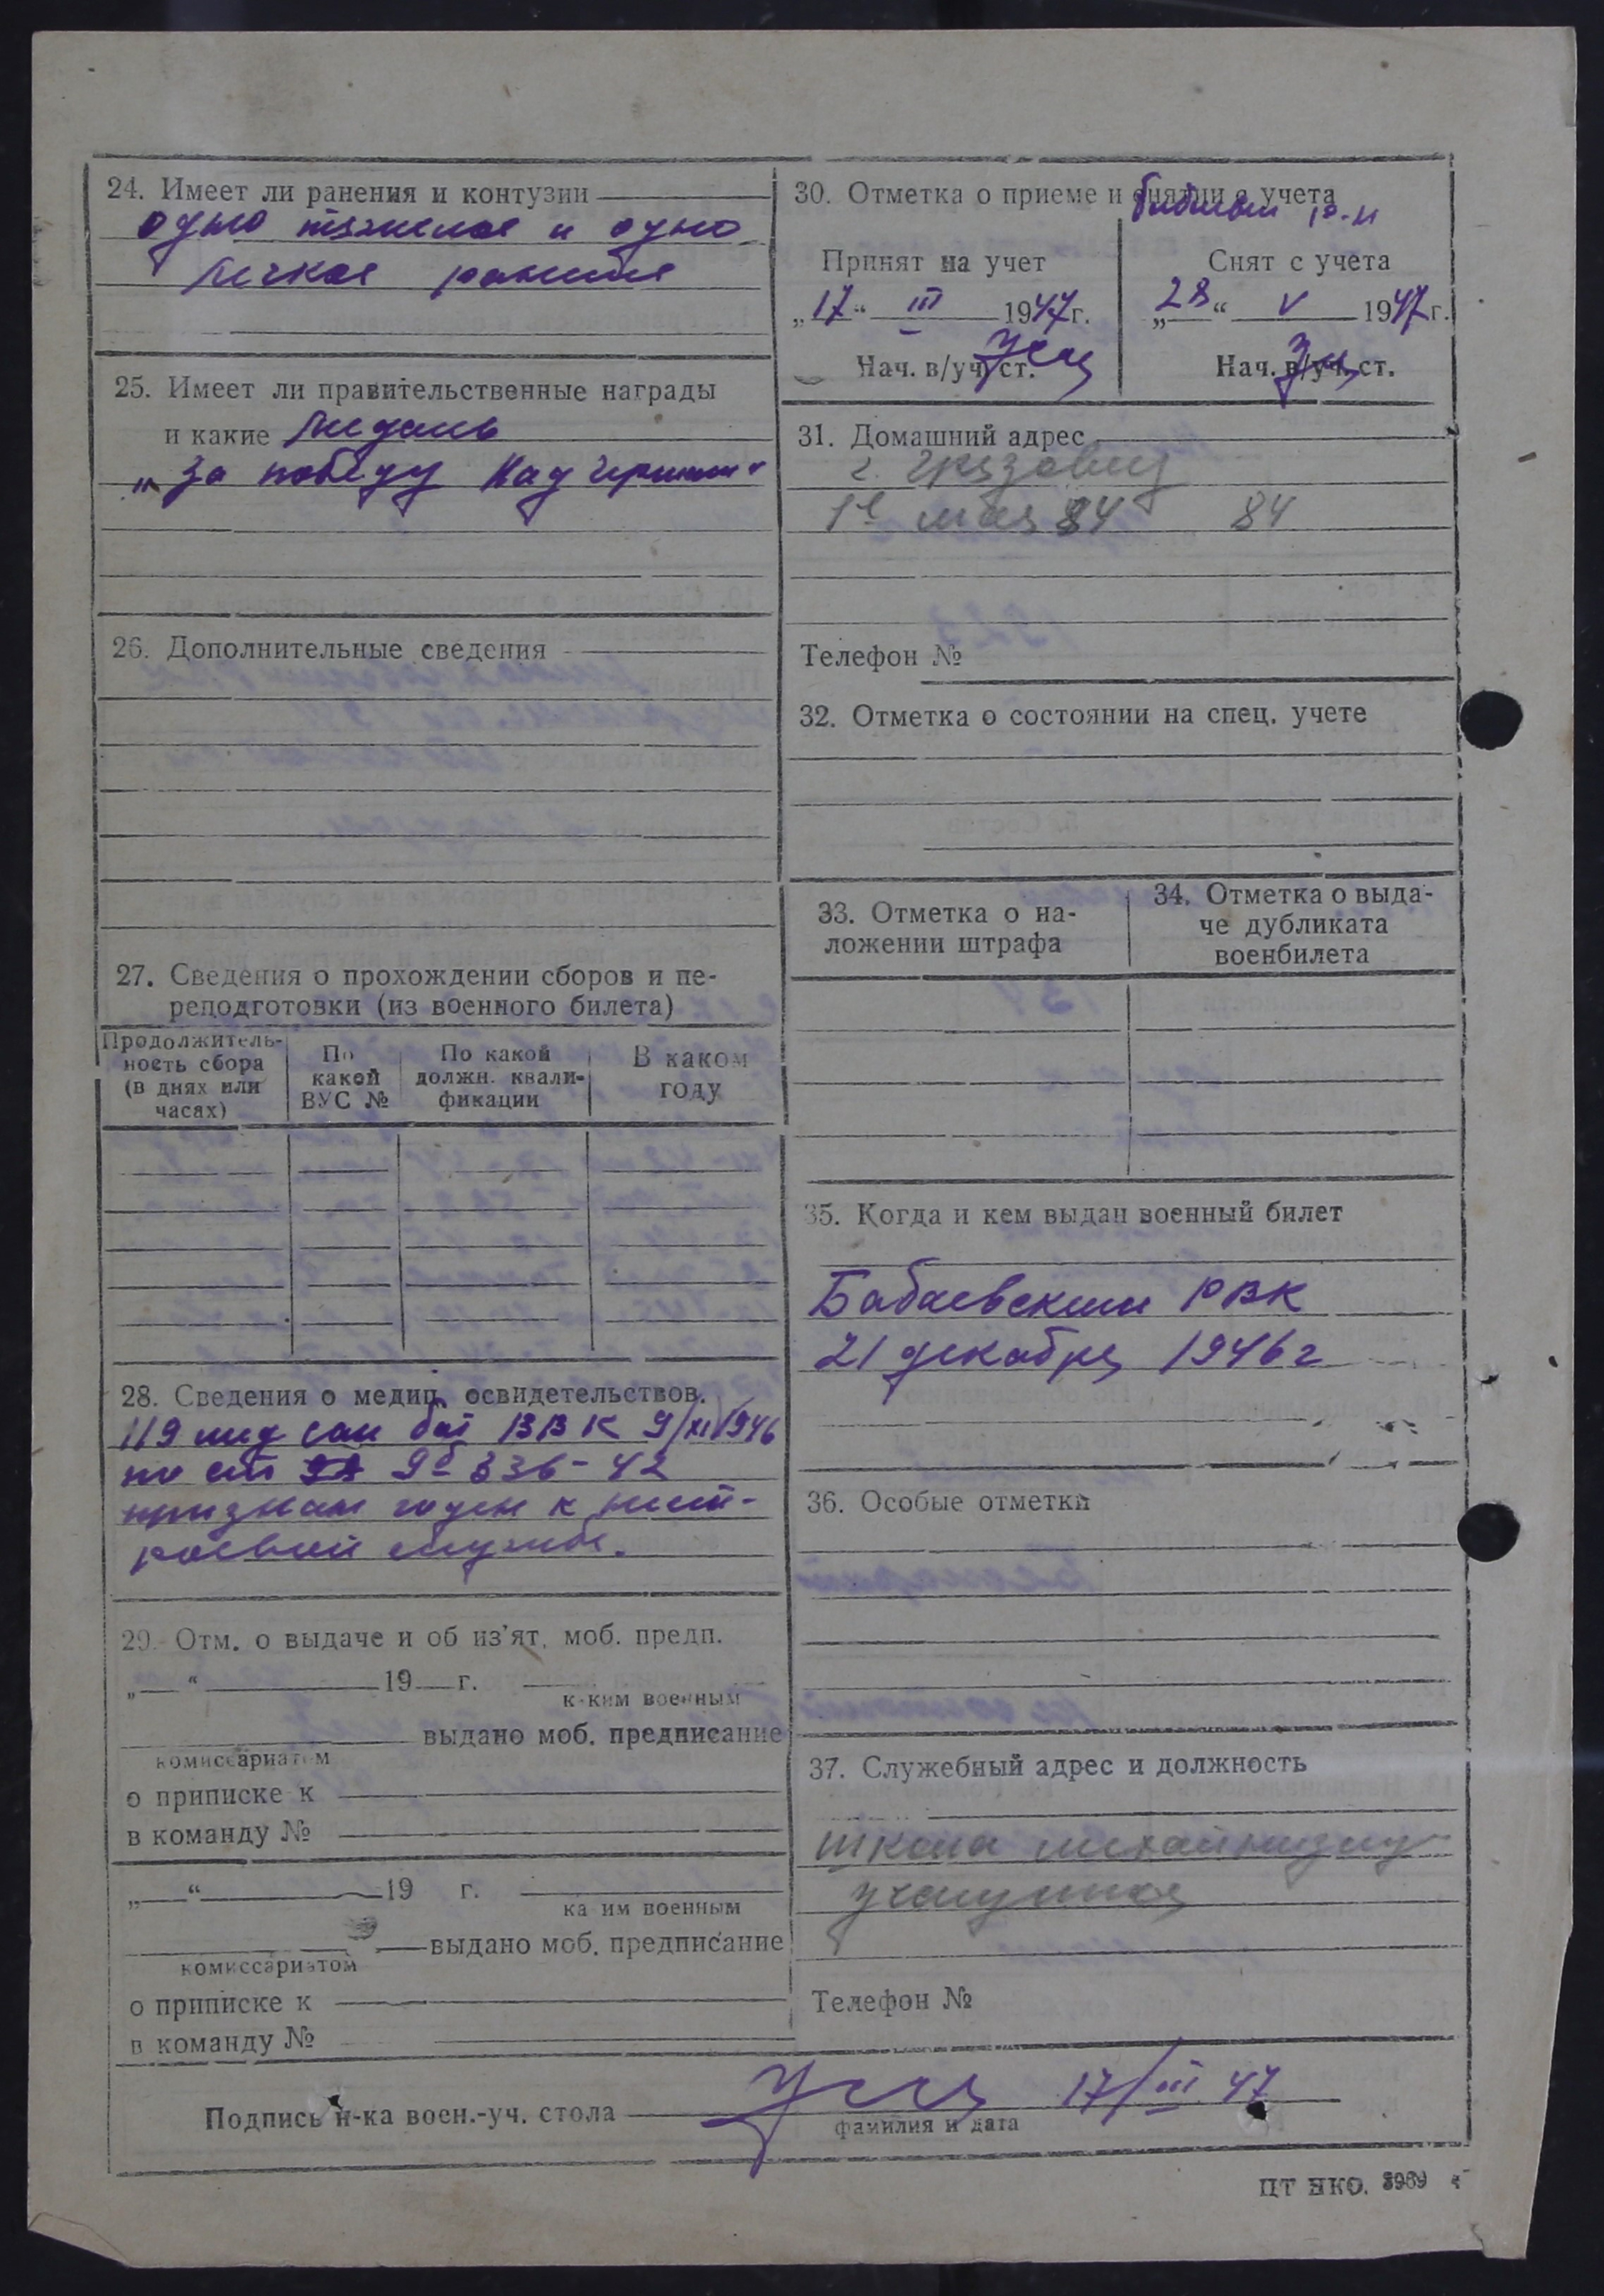 24. Имеет ли ранения и контузии
одно тяжелое и одно
легкое ранения
25. Имеет ли правительственные награды
и какие медаль
„За победу над Герман“
26. Дополнительные сведения
27. Сведения о прохождении сборов и пе-
реподготовки (из военного билета)
Продолжитель-
ность сбора
(в днях или
часах)
По
какой
ВУС №
По какой
должн. квали-
фикации
В каком
году
28. Сведения о медиц. освидетельствов.
119 мед сан бат ВВК 9/XI 1946
по ст 9б 336-42
признан годен к нест-
роевой службе.
29. Отм. о выдаче и об из’ят. моб. предп.
„ “ 19 г.
каким военным
выдано моб. предписание
комиссариатом
о приписке к
в команду №
„ “ 19 г.
ка им военным
выдано моб. предписание
комиссариатом
о приписке к
в команду №
30. Отметка о приеме и снятии с учета
Принят на учет
„17“ III 1947г.
Нач. в/уч. ст.
Снят с учета
„28“ V 1947г.
Нач. в/уч. ст.
31. Домашний адрес
г. Грязовец
1е мая 84 84
Телефон №
32. Отметка о состоянии на спец. учете
33. Отметка о на-
ложении штрафа
34. Отметка о выда-
че дубликата
военбилета
35. Когда и кем выдан военный билет
Бабаевским РВК
21 декабря 1946г
36. Особые отметки
37. Служебный адрес и должность
школа
Телефон №
Подпись н-ка воен.-уч. стола 17/III 47
фамилия и дата
ЦТ НКО. 3969